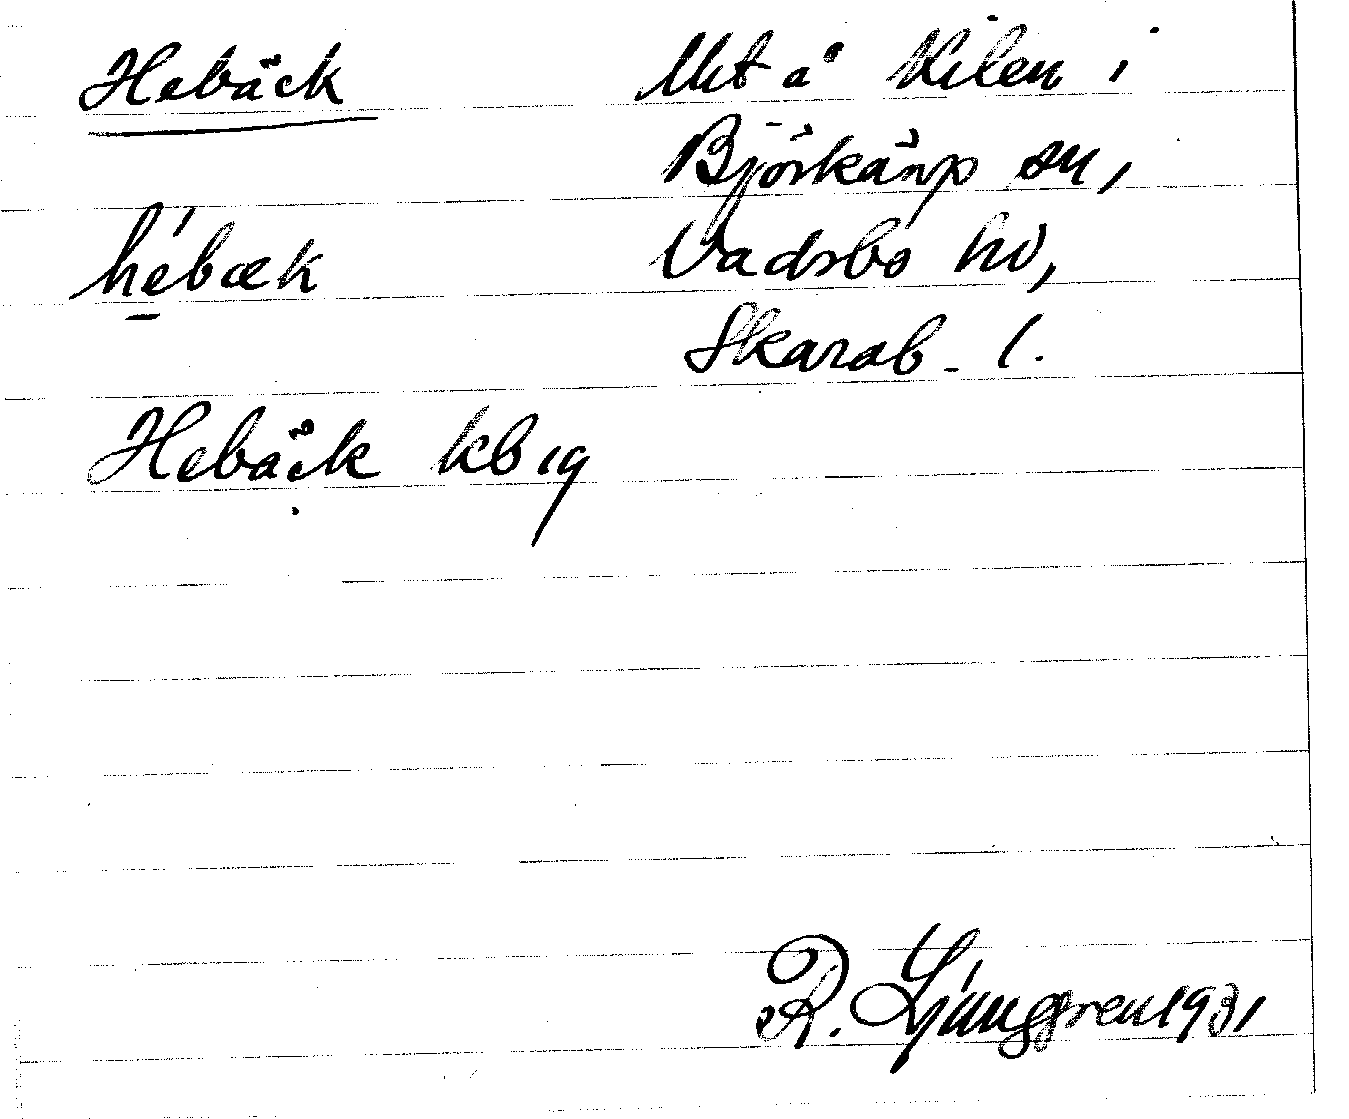 Hebäck
Mt å Kilen i
Björkäng sn,
Vadsbo hd,
Skarab. l.
hébæk
Hebäck kb 19
R. Ljunggren 1931